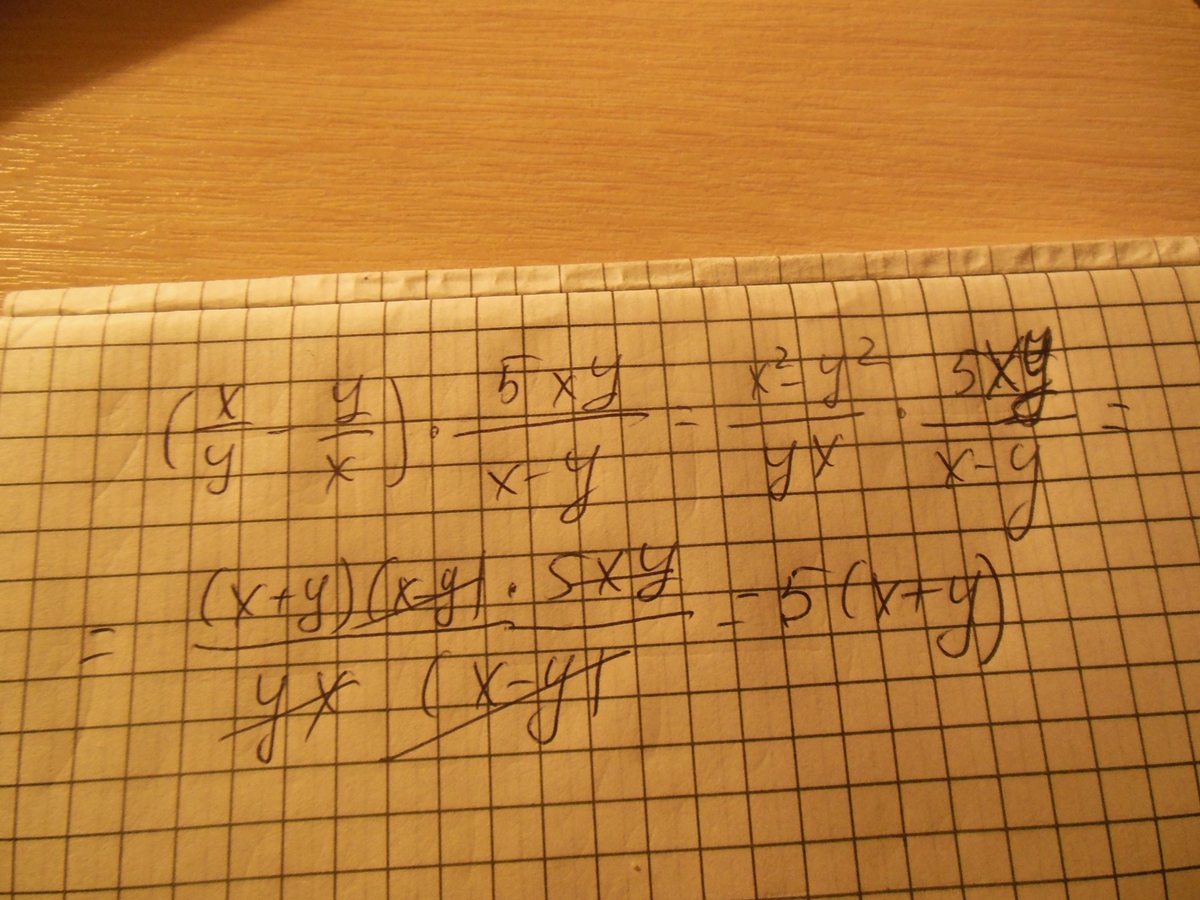 (x/y - y/x) · 5xy/(x-y) = (x² - y²)/(yx) · 5xy/(x-y) =
= (x+y)(x-y) · 5xy/(yx (x-y)) = 5(x+y)